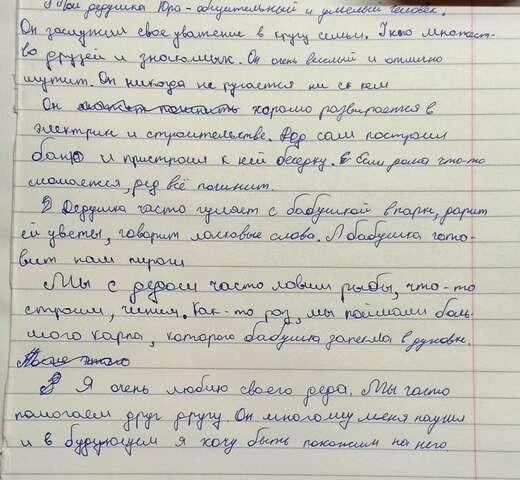 Мой дедушка Юра - общительный и умелый человек.
Он заслужил свое уважение в кругу семьи. У него множест-
во друзей и знакомых. Он очень веселый и отлично
шутит. Он никогда не ругается ни с кем
Он может починить хорошо развирается в
электрик и строительстве. Дед сам построил
баню и пристроил к ней беседку. Если дома что-то
сломается, дед всё починит.
Дедушка часто гуляет с бабушкой в парк, дарит
ей цветы, говорит ласковые слова. А бабушка гото-
вит нам пироги
Мы с дедом часто ловим рыбы, что-то
строим, чиним. Как-то раз, мы поймали боль-
шого карпа, которого бабушка запекла в духовке.
После этого
Я очень люблю своего деда. Мы часто
помогаем друг другу. Он многому меня научил
и в будующем я хочу быть похожим на него.